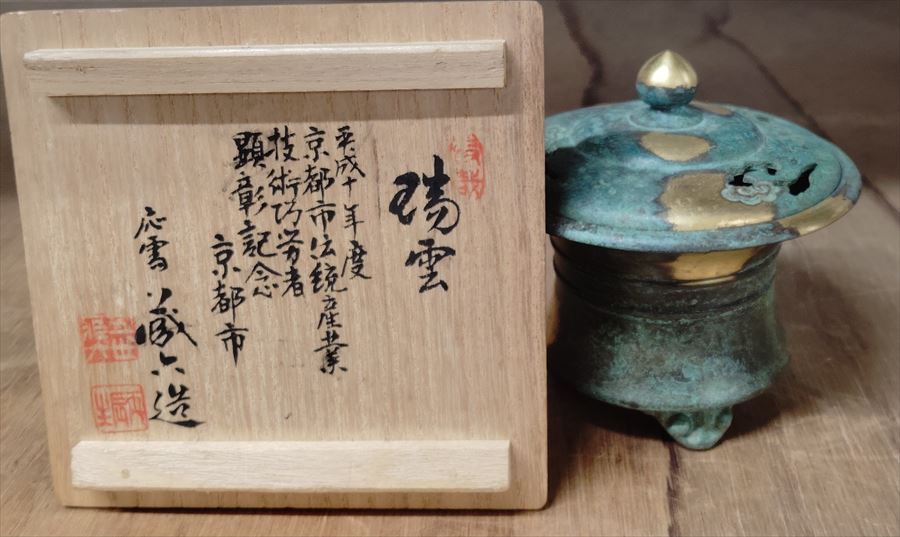 瑞雲
平成十年度
京都市伝統産業
技術功労者
顕彰記念
京都市
応需 藏六造